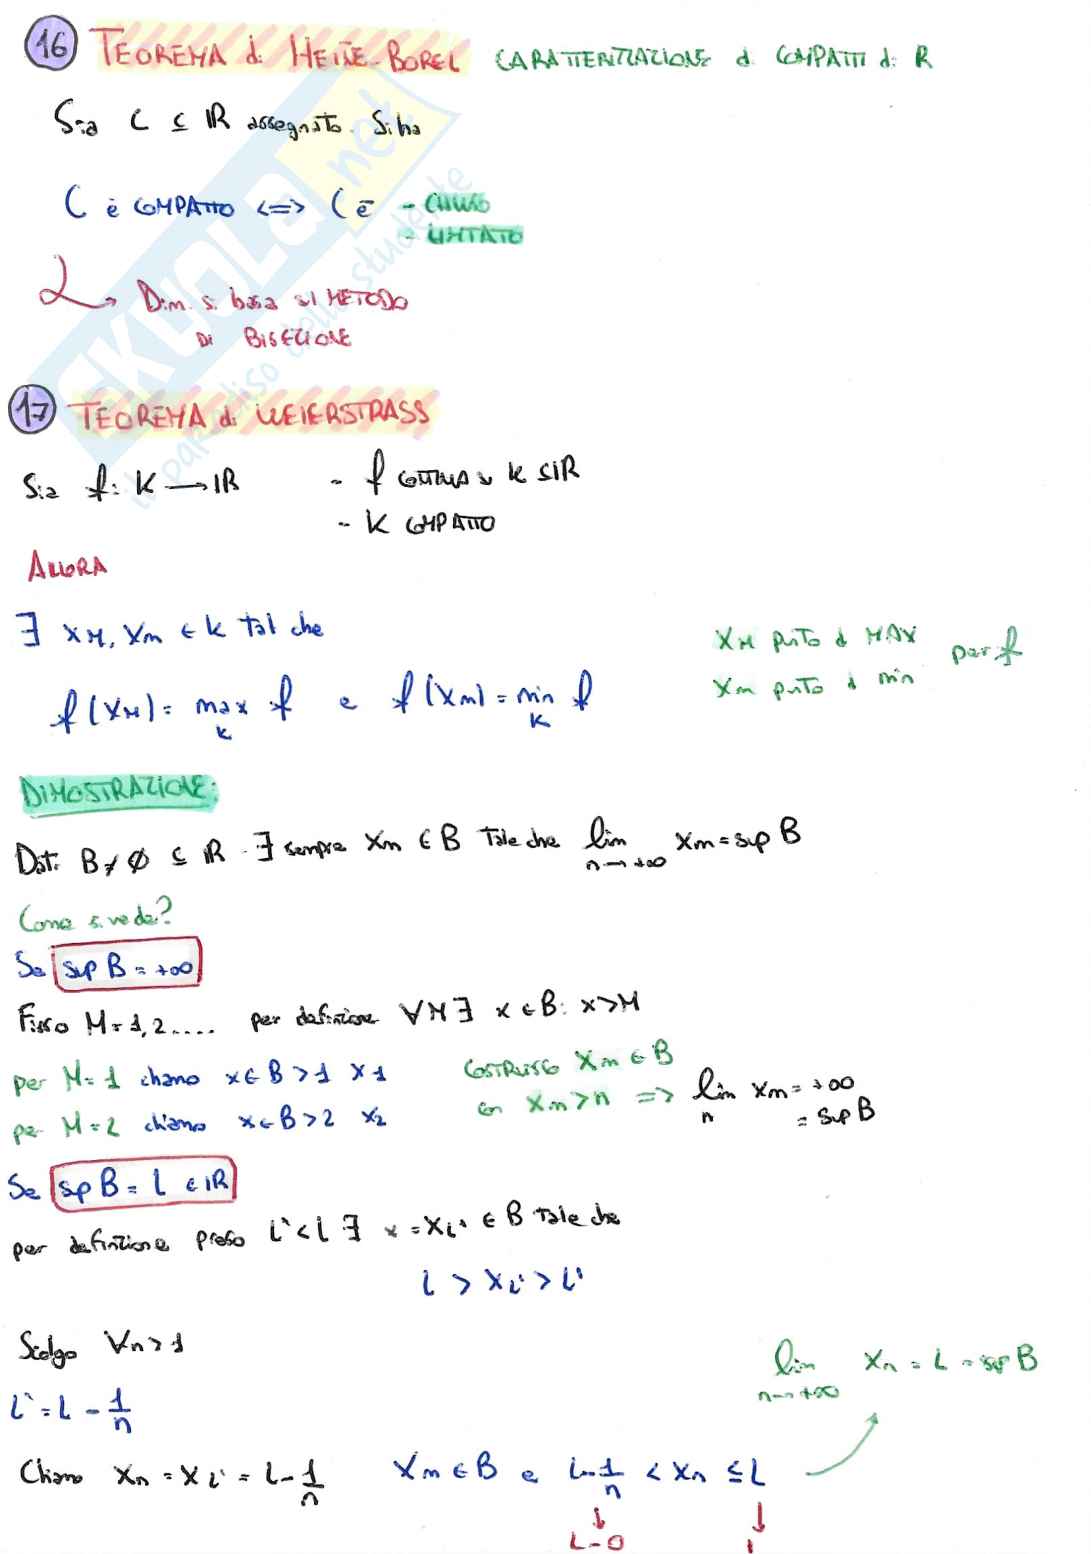 16 TEOREMA di HEINE-BOREL CARATTERIZZAZIONE di COMPATTI di R
Sia C ⊆ ℝ assegnato. Si ha
C è COMPATTO <=> C è - CHIUSO
- LIMITATO
→ Dim. si basa sul METODO
DI BISEZIONE
17 TEOREMA di WEIERSTRASS
Sia f: K → ℝ - f CONTINUA su K ⊆ ℝ
- K COMPATTO
ALLORA
∃ x_M, x_m ∈ K tali che
x_M punto di MAX
x_m punto di min
per f
f(x_M) = max_K f e f(x_m) = min_K f
DIMOSTRAZIONE:
Dati B ≠ ∅ ⊆ ℝ. ∃ sempre x_n ∈ B Tale che lim_{n→+∞} x_n = sup B
Come si vede?
Se sup B = +∞
Fisso M = 1, 2.... per definizione ∀M ∃ x ∈ B: x > M
per M = 1 chiamo x ∈ B > 1 x_1
per M = 2 chiamo x ∈ B > 2 x_2
COSTRUISCO x_n ∈ B
con x_n > n => lim_n x_n = +∞
= sup B
Se sup B = L ∈ ℝ
per definizione preso L' < L ∃ x = x_L' ∈ B Tale che
L > x_L' > L'
Scelgo ∀n > 1
L' = L - 1/n
lim_{n→+∞} x_n = L = sup B
Chiamo x_n = x_L' = L - 1/n x_n ∈ B e L - 1/n < x_n ≤ L
↓ ↓
L - 0 L
SKUOLA.net
il paradiso dello studente